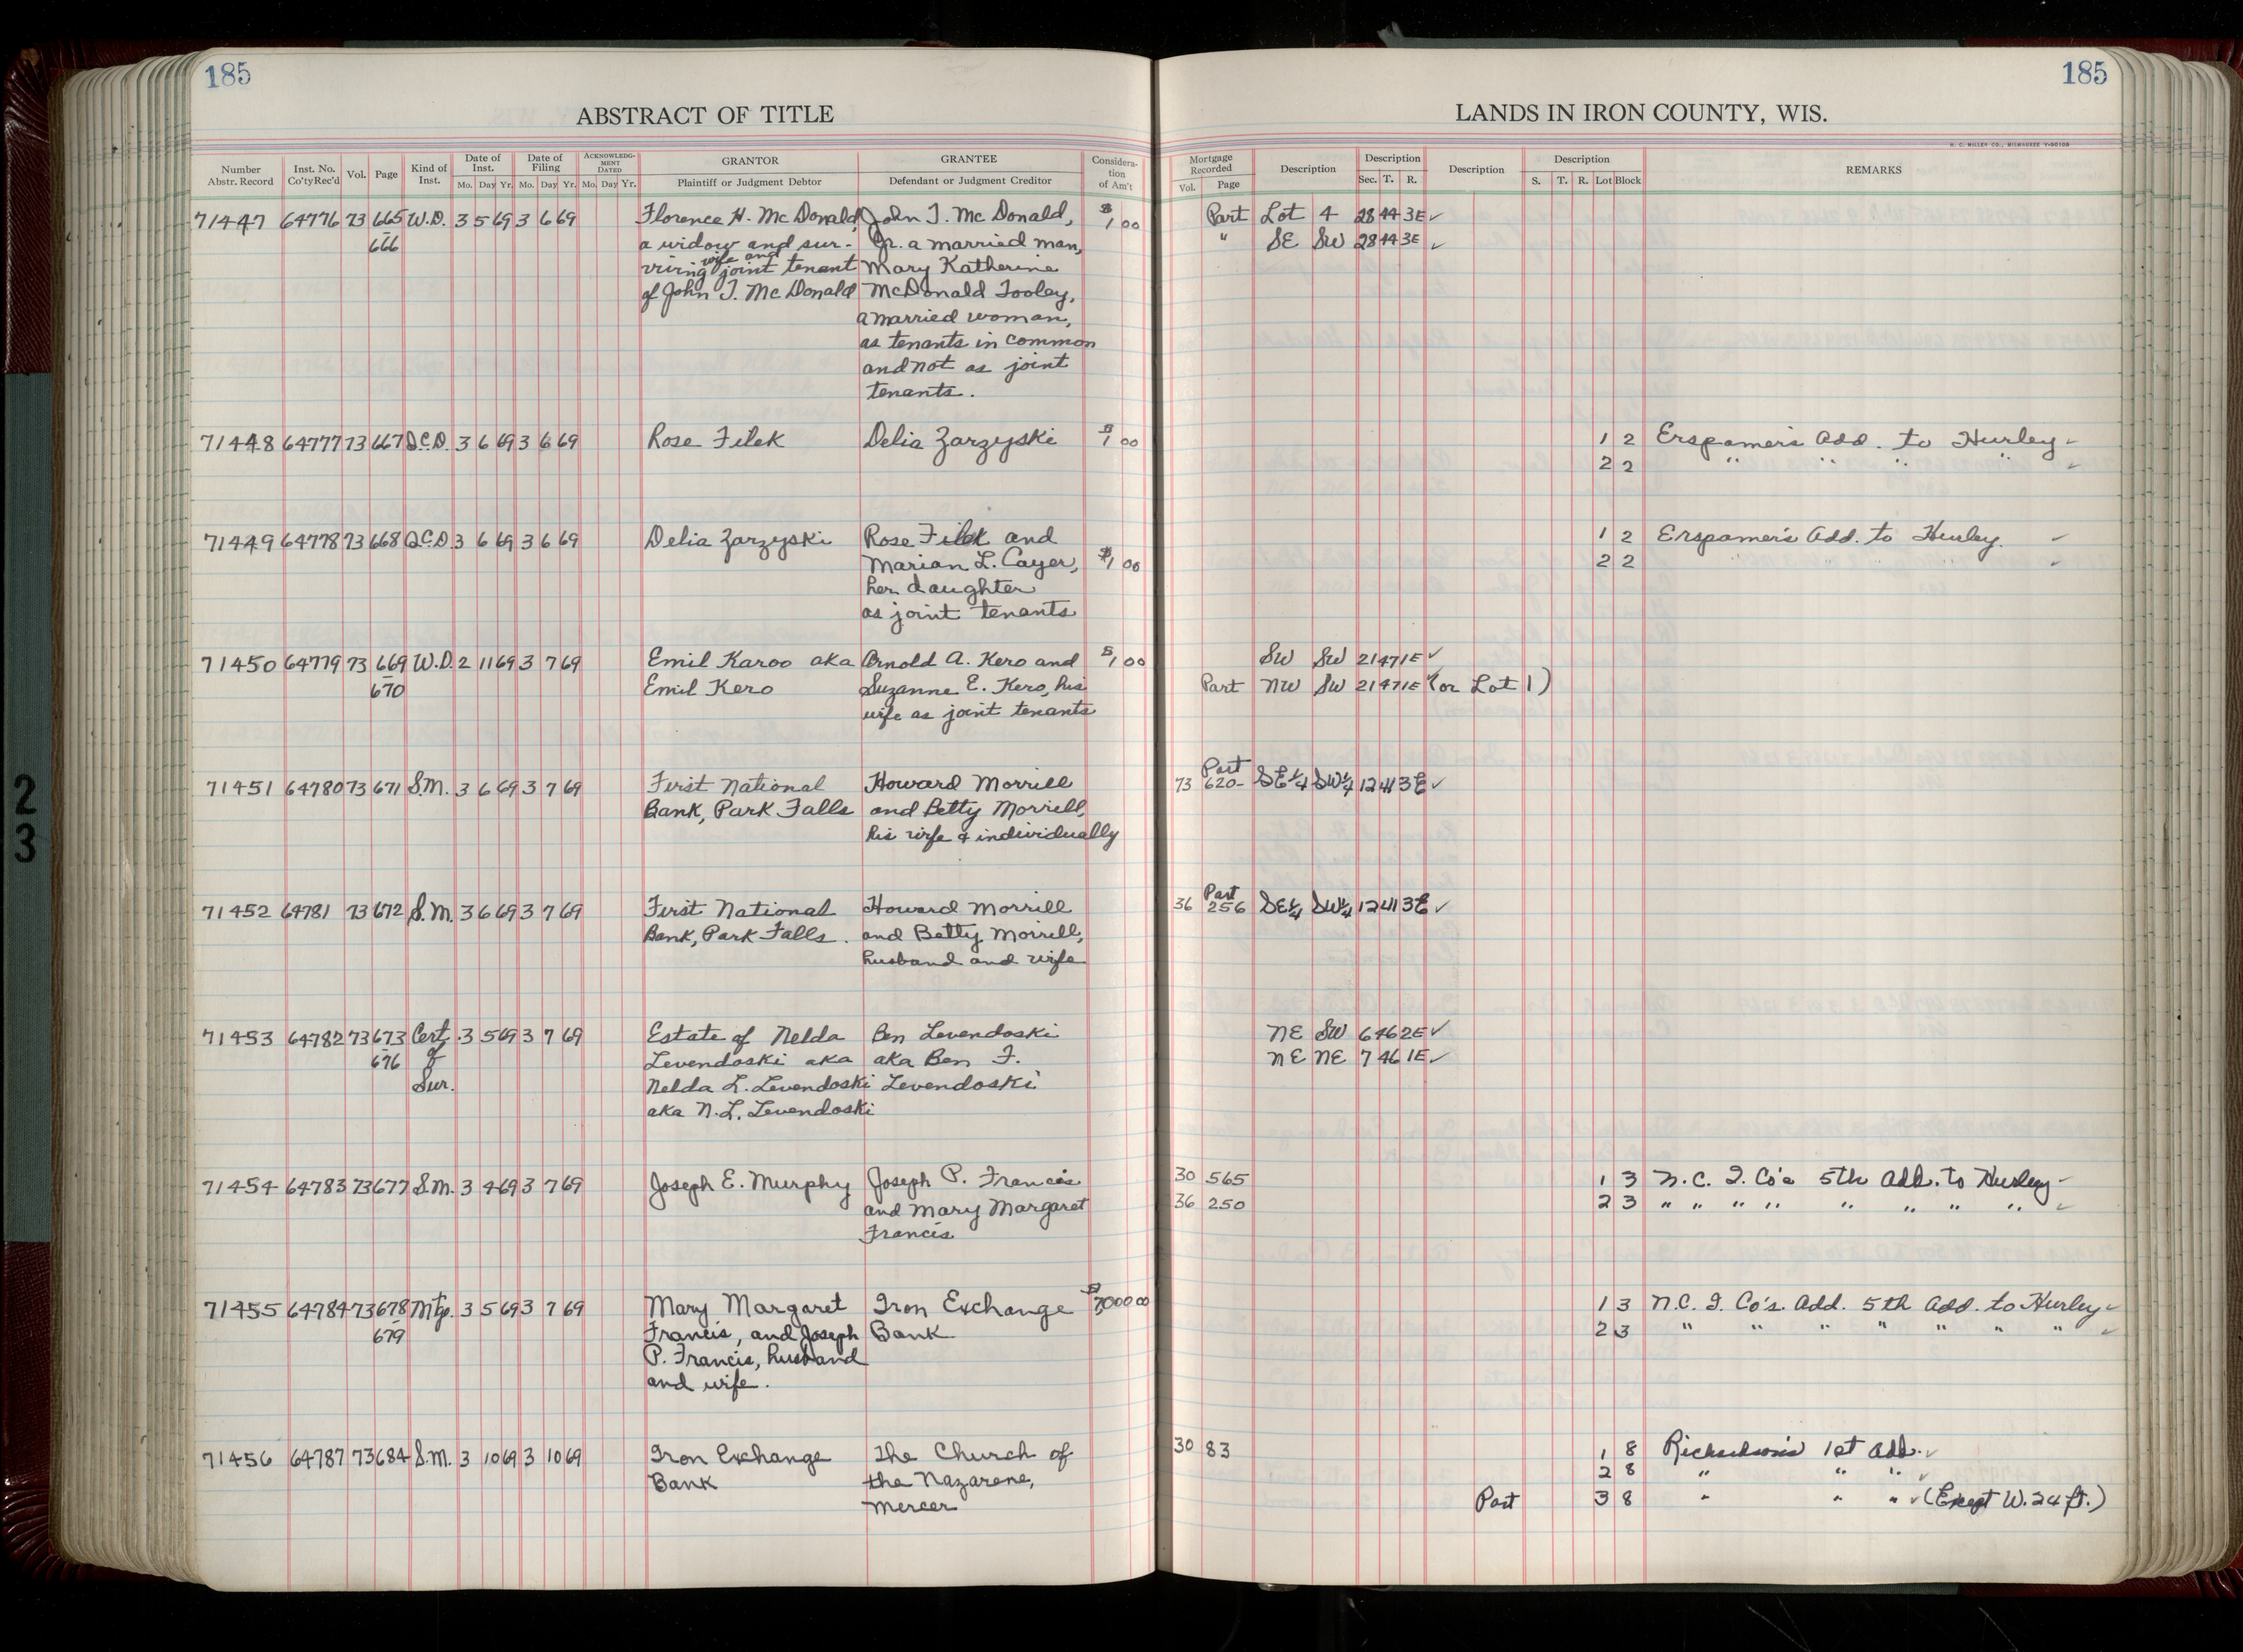 185
185
ABSTRACT OF TITLE
LANDS IN IRON COUNTY, WIS.
H. C. MILLER CO., MILWAUKEE
Number Abstr. Record
Inst. No. Co'ty Rec'd
Vol.
Page
Kind of Inst.
Date of Inst.
Mo. Day Yr.
Date of Filing
Mo. Day Yr.
ACKNOWLEDGMENT DATED
Mo. Day Yr.
GRANTOR
Plaintiff or Judgment Debtor
GRANTEE
Defendant or Judgment Creditor
Consideration of Am't
Mortgage Recorded
Vol. Page
Description
Description
Sec. T. R.
Description
Description
S. T. R. Lot Block
REMARKS
71447 64776 73 665 W.D. 3 5 69 3 6 69 Florence H. McDonald, John T. McDonald, $1 00 Part Lot 4 28 44 3E ✓
666 a widow and sur- Jr. a married man, " SE SW 28 44 3E ✓
wife and
viving joint tenant Mary Katherine
of John T. McDonald McDonald Tooley,
a married woman,
as tenants in common
and not as joint
tenants.
71448 64777 73 667 Q.C.D. 3 6 69 3 6 69 Rose Filek Delia Zarzyski $1 00 1 2 Erspamer's Add. to Hurley ✓
2 2 " " " " ✓
71449 64778 73 668 Q.C.D. 3 6 69 3 6 69 Delia Zarzyski Rose Filek and 1 2 Erspamer's Add. to Hurley. ✓
Marian L. Cayer, $1 00 2 2 " " " " ✓
her daughter
as joint tenants
71450 64779 73 669 W.D. 2 11 69 3 7 69 Emil Karoo aka Arnold A. Kero and $1 00 SW SW 21 47 1E ✓
670 Emil Kero Suzanne E. Kero, his Part NW SW 21 47 1E ✓ (or Lot 1)
wife as joint tenants
Part
71451 64780 73 671 S.M. 3 6 69 3 7 69 First National Howard Morrill 73 620- SE¼ SW¼ 12 41 3E ✓
Bank, Park Falls and Betty Morrill,
his wife & individually
Part
71452 64781 73 672 S.M. 3 6 69 3 7 69 First National Howard Morrill 36 256 SE¼ SW¼ 12 41 3E ✓
Bank, Park Falls. and Betty Morrill,
husband and wife
71453 64782 73 673 Cert. 3 5 69 3 7 69 Estate of Nelda Ben Levendoski NE SW 6 46 2E ✓
676 of Levendoski aka aka Ben F. NE NE 7 46 1E ✓
Sur. Nelda L. Levendoski Levendoski
aka N.L. Levendoski
71454 64783 73 677 S.M. 3 4 69 3 7 69 Joseph E. Murphy Joseph P. Francis 30 565 1 3 N.C. I. Co's 5th Add. to Hurley ✓
and Mary Margaret 36 250 2 3 " " " " " " " " ✓
Francis
71455 64784 73 678 Mtg. 3 5 69 3 7 69 Mary Margaret Iron Exchange 1 3 N.C. I. Co's. Add. 5th Add. to Hurley ✓
679 Francis, and Joseph Bank 2 3 " " " " " " " ✓
P. Francis, husband
and wife.
71456 64787 73 684 S.M. 3 10 69 3 10 69 Iron Exchange The Church of 30 83 1 8 Richardson's 1st Add. ✓
Bank the Nazarene, 2 8 " " " ✓
Mercer Part 3 8 " " " ✓ (Except W. 24 ft.)
2
3